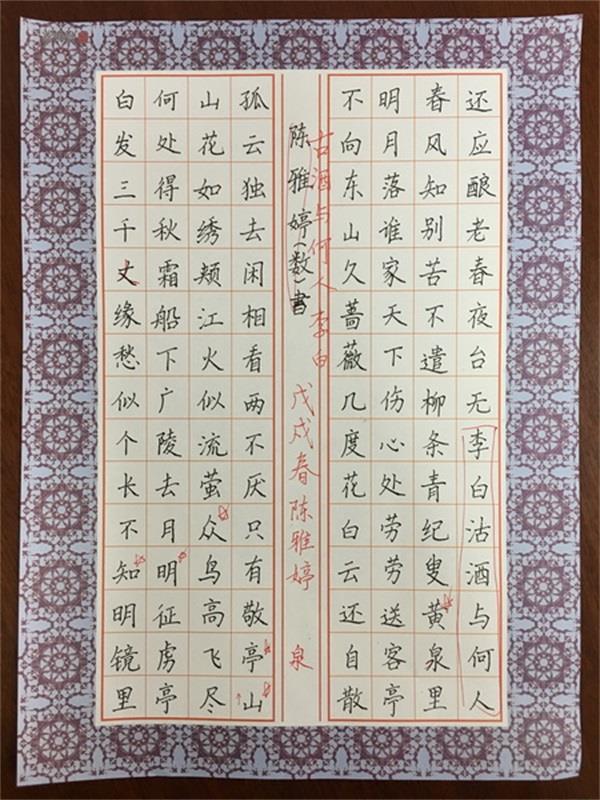 白发三千丈缘愁似个长不知明镜里
何处得秋霜船下广陵去月明征虏亭
山花如绣颊江火似流萤众鸟高飞尽
孤云独去闲相看两不厌只有敬亭山
陈雅婷(数)書
古酒与何人李白 戊戌春陈雅婷 泉
不向东山久蔷薇几度花白云还自散
明月落谁家天下伤心处劳劳送客亭
春风知别苦不遣柳条青纪叟黄泉里
还应酿老春夜台无李白沽酒与何人